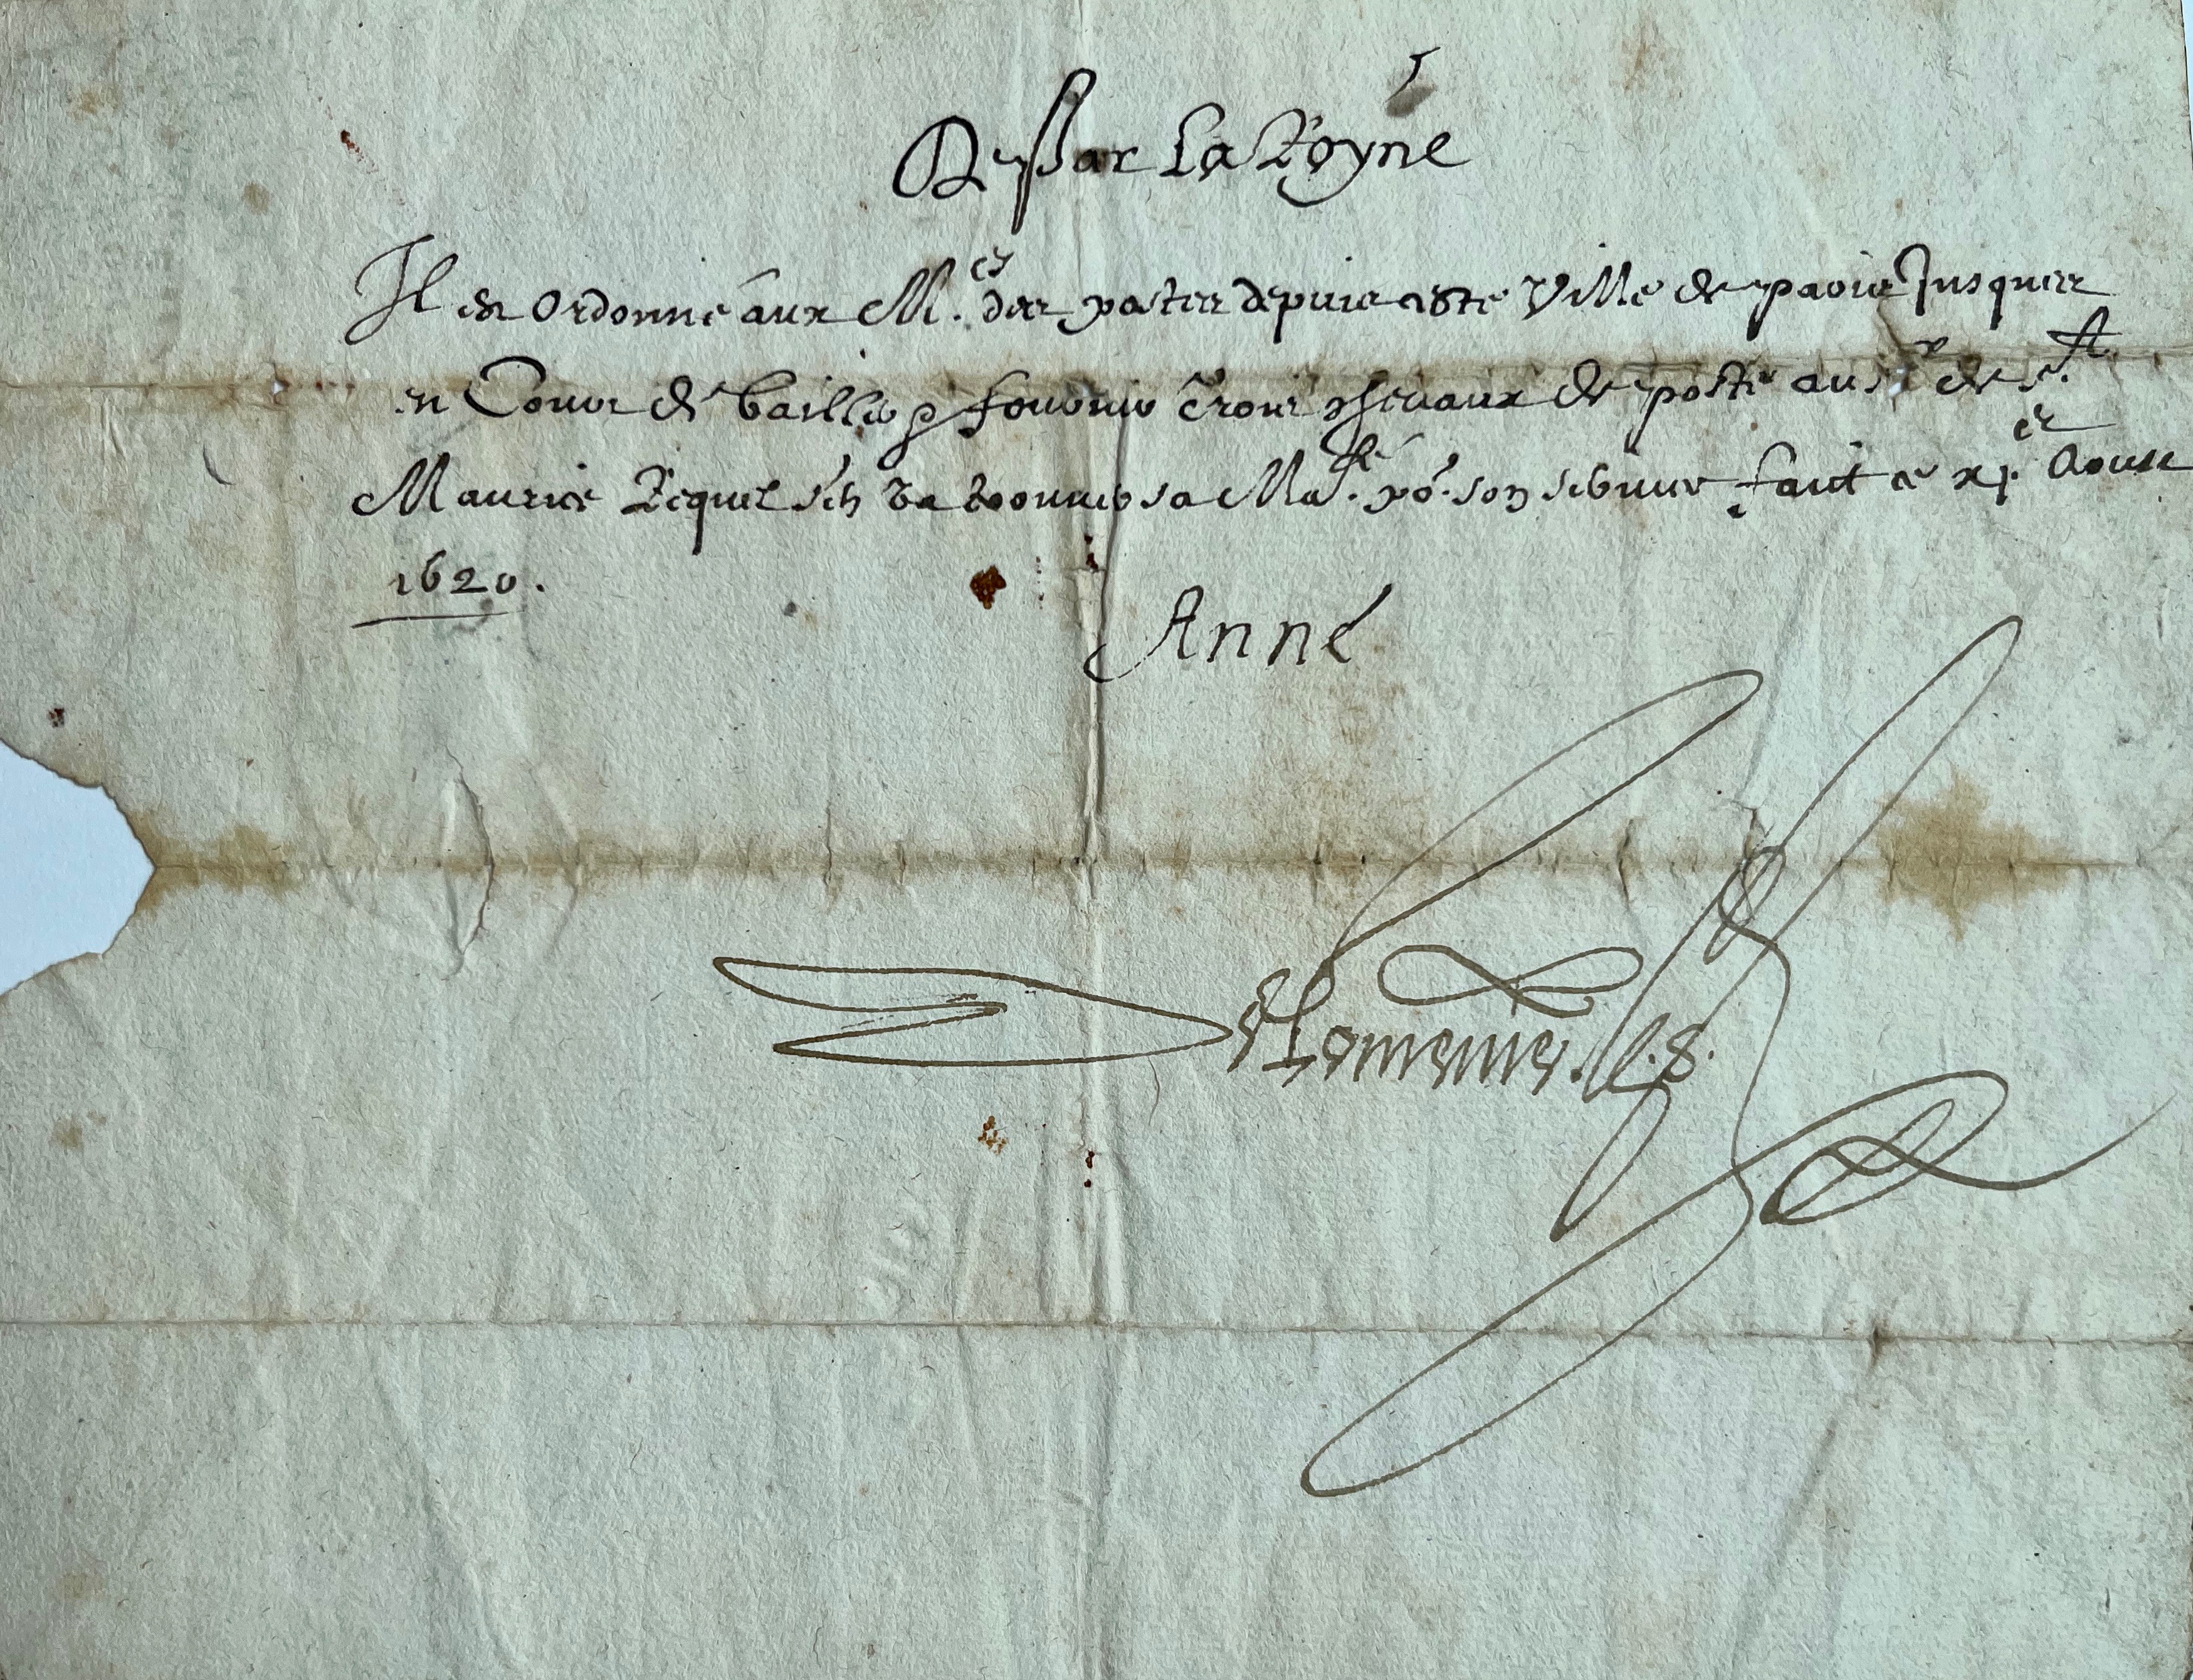 De par La Royne
Il est Ordonne aux M.es des postes depuis ceste Ville de paris Jusques
en Cour de bailler & fournir Trois chevaux de poste au s.r de s.t
Maurice Lequel s'en va trouver sa Ma.té po.r son service faict ce xj.e Aoust
1620.
Anne